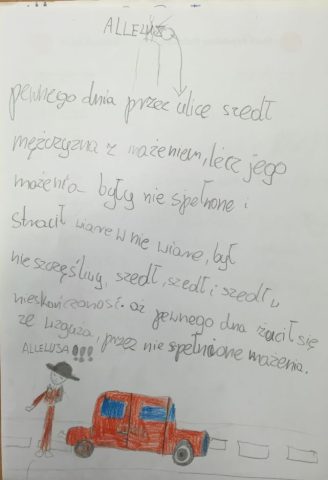 ALLELUJA
pewnego dnia przez ulice szedł
mężczyzna z mażeniem, lecz jego
mażenia były nie spełnone i
stracił wiare w nie wiare, był
nieszczęśliwy, szedł, szedł i szedł w
nieskończoność. aż pewnego dna zucił się
ze wzguża, przez nie spełnione mażenia.
ALLELUJA!!!